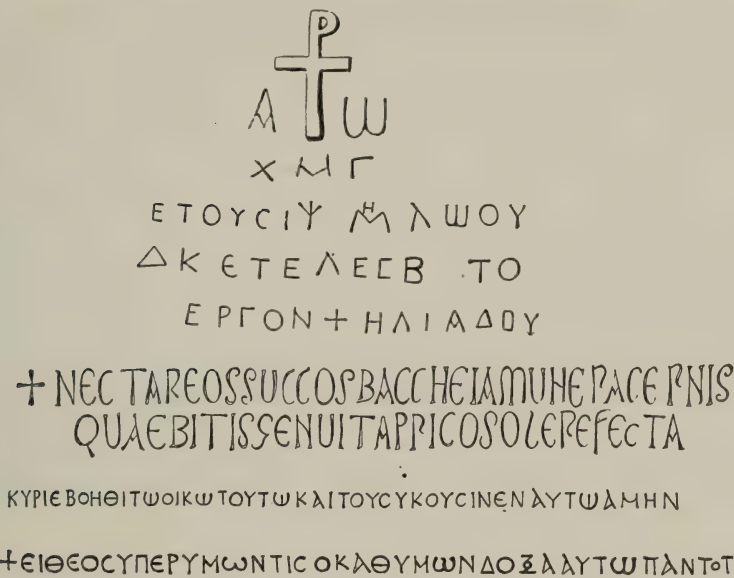 ⳨
Α Ω
Χ Μ Γ
ΕΤΟΥϹΙΨ ΜΗ ΛΩΟΥ
ΔΚ ΕΤΕΛΕΣΒ ΤΟ
ΕΡΓΟΝ + ΗΛΙΑΔΟΥ
+ NECTAREOSSUCCOSBACCHEIAMUNERACERNIS
QUAEBITISGENUITAPRICOSOLEREFECTA
ΚΥΡΙΕΒΟΗΘΙΤΩΟΙΚΩΤΟΥΤΩΚΑΙΤΟΥϹΥΚΟΥϹΙΝΕΝΑΥΤΩΑΜΗΝ
+ΕΙΘΕΟϹΥΠΕΡΥΜΩΝΤΙϹΟΚΑΘΥΜΩΝΔΟΞΑΑΥΤΩΠΑΝΤΟΤ